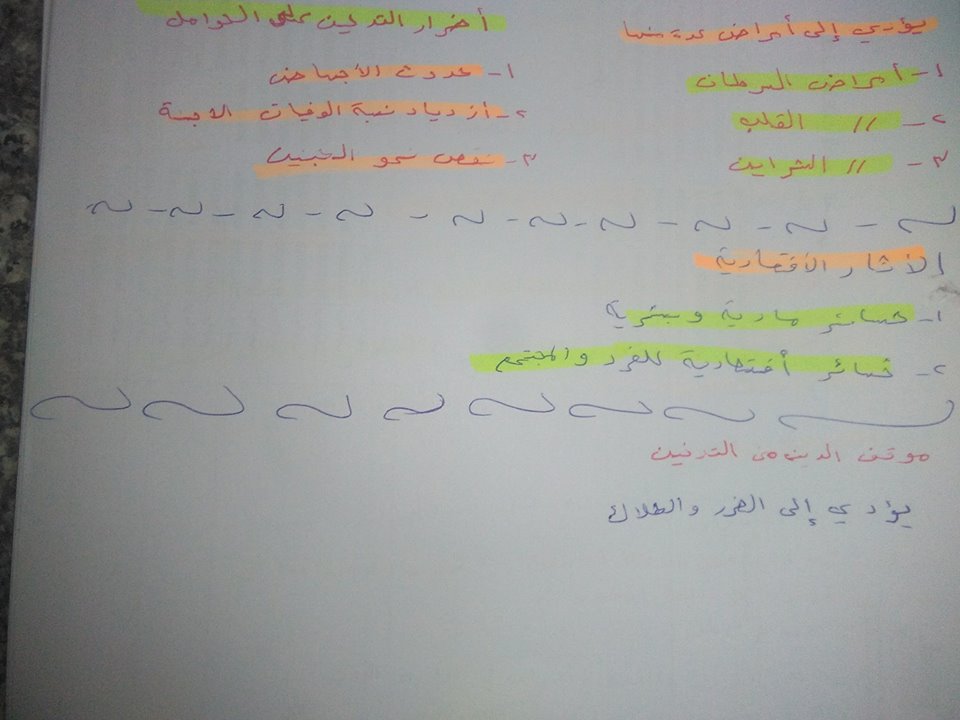 يؤدي إلى أمراض عدة منها
١- أمراض السرطان
٢- // القلب
٣- // الشراين
أضرار التدخين على الحوامل
١- حدوث الأجهاض
٢- أزدياد نسبة الوفيات
٣- نقص نمو الجنين
الأثار الأقتصادية
١- خسائر مادية وبشرية
٢- خسائر أقتصادية للفرد والمجتمع
موقف الدين من التدخين
يؤدي إلى الضرر والهلاك